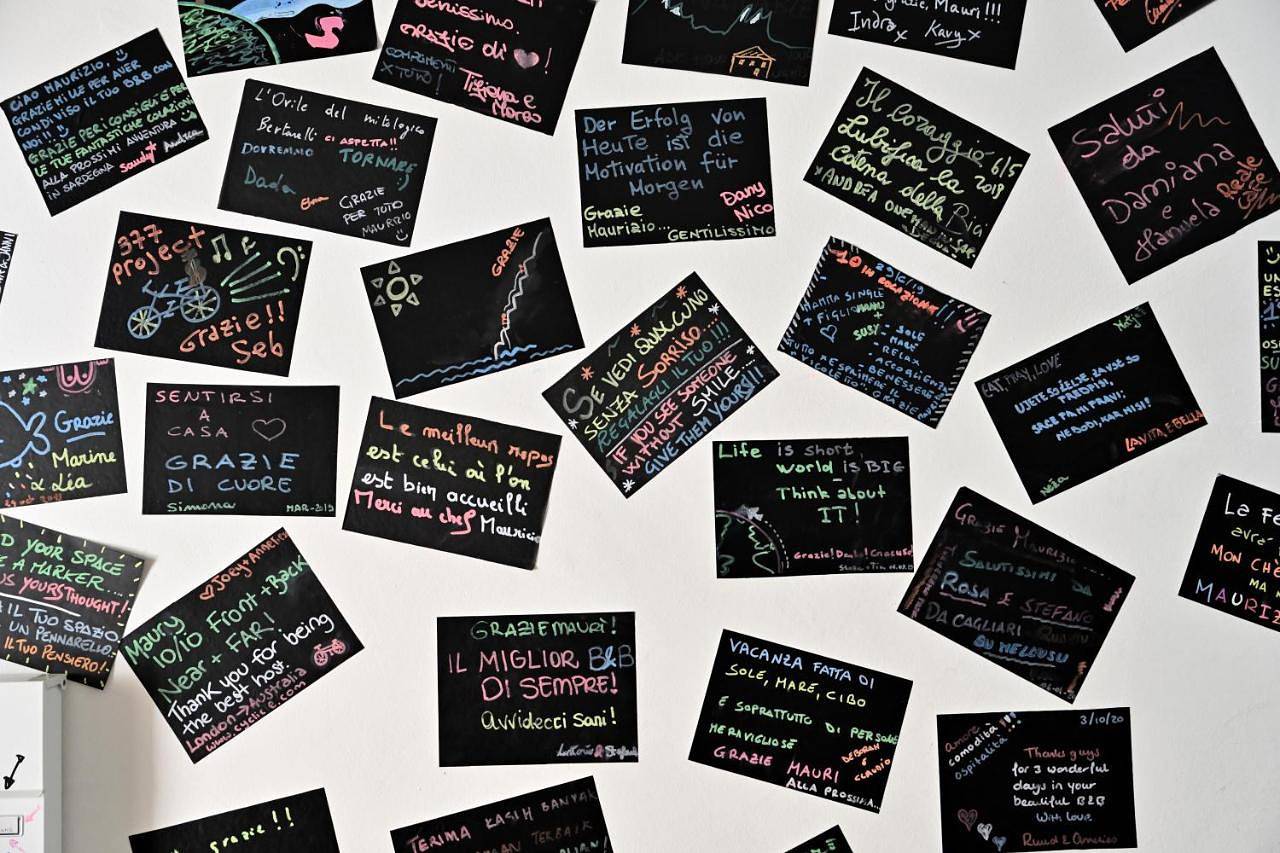 CIAO MAURIZIO,
GRAZIE MILLE PER AVER
CONDIVISO IL TUO B&B CON
NOI!!
GRAZIE PER I CONSIGLI E PER
LE TUE FANTASTICHE COLAZIONI
ALLA PROSSIMA AVVENTURA
IN SARDEGNA Sandy+ Andrea
L'Ovile del mitologico
Bertanelli CI ASPETTA!!
DOVREMMO TORNARE
:)
Dada
GRAZIE
PER TUTTO
MAURIZIO
GRAZIE di !
COMPLIMENTI
X TUTTO! Tiziana e
Marco
grazie, Mauri!!!
Indra x Kavy x
Der Erfolg von
Heute ist die
Motivation für
Morgen
Grazie
Maurizio...
Dany
Nico
GENTILISSIMO
Il Coraggio 6/5
Lubrifica la 2019
Catena della Bici
x ANDREA
Saluti
da
Damiana
e
Manuela
377
project
Grazie!!
Seb
GRAZIE
SE VEDI QUALCUNO
SENZA SORRISO....
REGALAGLI IL TUO!!!
IF YOU SEE SOMEONE
WITHOUT SMILE...
GIVE THEM YOURS!!!
29/6/19
MAMMA SINGLE
+ FIGLIO
SUSY
- SOLE
- MARE
- RELAX
- ACCOGLIENTE
GRAZIE
Matjaž
EAT, PRAY, LOVE
UJETE SO ŽELJE, ZAVSE SO
PREDPISI,
SRCE PA MI PRAVI:
NE BODI, KAR NISI!
LA VITA, E BELLA
Neža
Grazie
Marine
& Léa
SENTIRSI
A
CASA
GRAZIE
DI CUORE
Simona MAR-2019
Le meilleur repos
est celui où l'on
est bien accueilli
Merci au chef Mauricio
Life is short,
world is BIG
Think about
IT!
GRAZIE MAURIZIO...
SALUTISSIMI DA
ROSA E STEFANO
DA CAGLIARI
La Fe
avre
MON CHÈ
MA
MAURIZ
D YOUR SPACE
E A MARKER...
US YOURSTHOUGHT!
IL TUO SPAZIO
UN PENNARELLO...
IL TUO PENSIERO!
Joey + Annette
Maury
10/10 Front + Back
Near + FAR!
Thank you for being
the best host.
London → Australia
GRAZIE MAURI!
IL MIGLIOR B&B
DI SEMPRE!
Avvidecci Sani!
VACANZA FATTA DI
SOLE, MARE, CIBO
E SOPRATTUTTO DI PERSONE
MERAVIGLIOSE
GRAZIE MAURI
DEBORAH
&
CLAUDIO
ALLA PROSSIMA...
3/10/20
amore
comodità!!!
ospitalità
Thanks guys
for 3 wonderful
days in your
beautiful B&B
With love
Ruud &
grazie!!
TERIMA KASIH BANYAK
TERBAIK